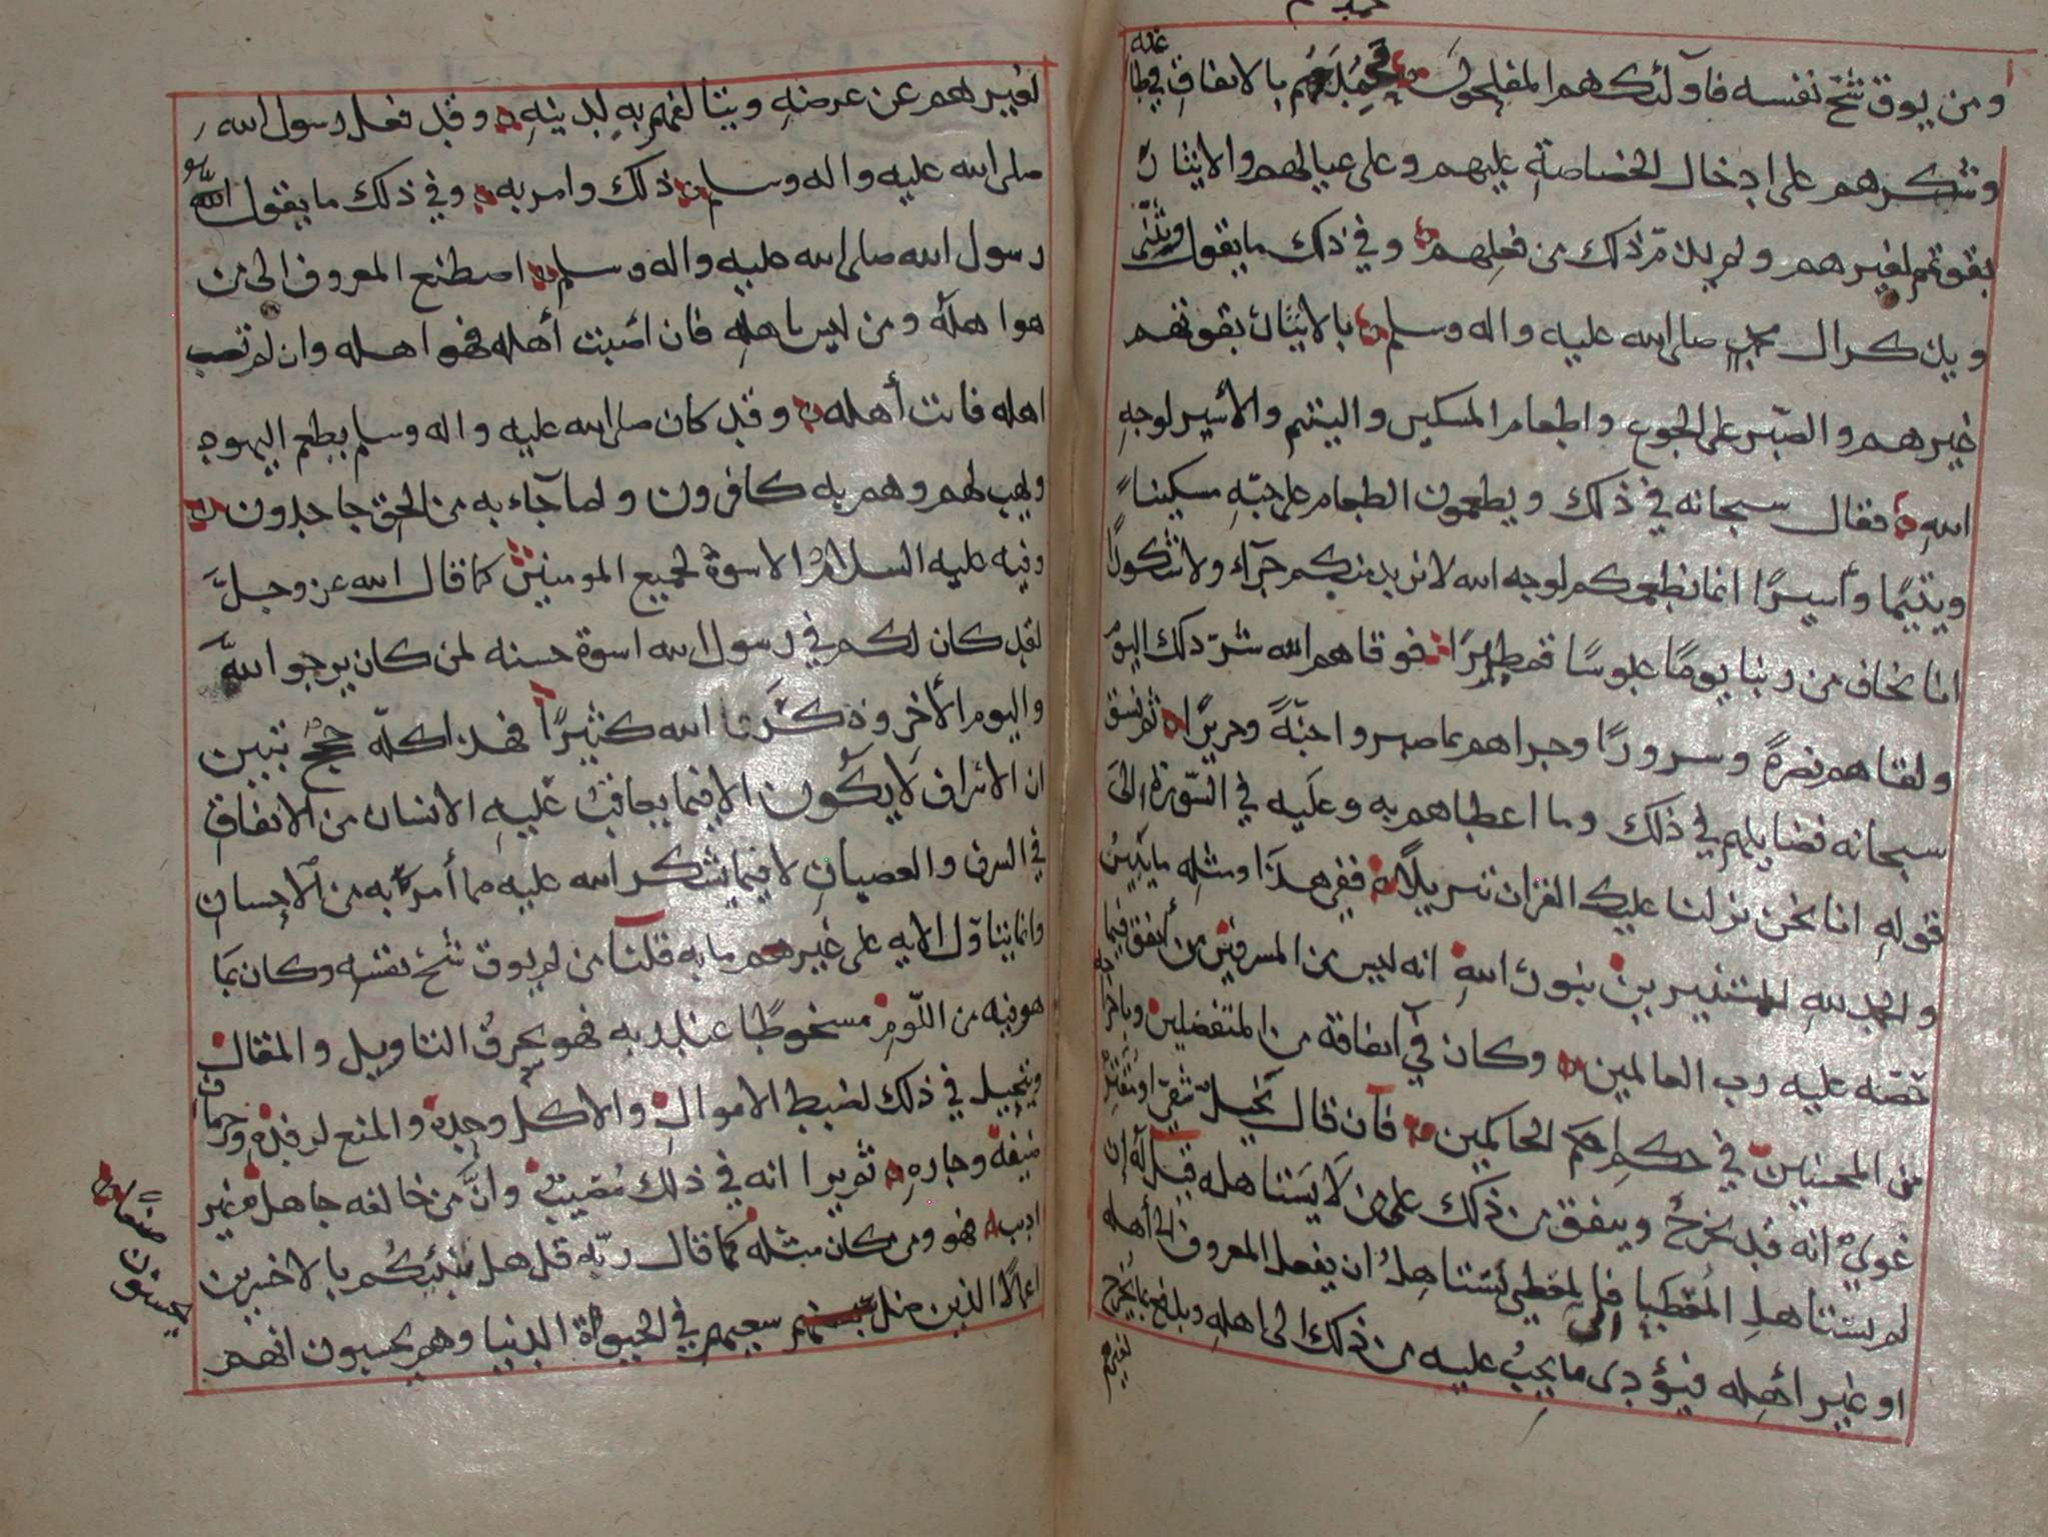 ومن يوق شح نفسه فاولئك هم المفلحون بالانفاق في طا
عته
وشكرهم على ادخال الخصاصة عليهم وعلى عيالهم والايثار
بقوتهم لغيرهم ولم يذمّ ذلك من فعلهم وفي ذلك ما يقول ويثني
ويذكر ال محمد صلى الله عليه واله وسلم بالايثار بقوتهم
غيرهم والصّبر على الجوع واطعام المسكين واليتيم والأسير لوجه
اللهِ فقال سبحانه في ذلك ويطعمون الطعام على حبّهِ مسكيناً
ويتيمًا وأسيرًا انما نطعمكم لوجه الله لا نريد منكم جزآء ولا شكورًا
انا نخاف من ربنا يومًا عبوسًا قمطريرًا فوقاهم الله شرّ ذلك اليوم
ولقاهم نضرةً وسرورًا وجزاهم بما صبروا جنّةً وحريرًا ثم نسق
سبحانه فضايلهم في ذلك وما اعطاهم به وعليه في السّورة الى
قوله انا نحن نزلنا عليك القران تنزيلاً ففي هذا ومثله ما يبين
والحمد لله للمستنيرين بنور اللهِ انه ليس من المسرفين من أنفق فيما
حضه عليه رب العالمين وكان في انفاقة من المتفضلين
من المحسنين في حكم احكم الحاكمين فان قال بخيل
غوي انه قد يخرجُ وينفق من ذلك على من لا يستاهله قيل له ان
لم يستاهل المُعْطَا فالمعطي يستاهلُ ان يفعل المعروف الى أهله
او غير أهله فيؤدى ما يجبُ عليه من ذلك الى اهله وبلغ بما يخرج
لغيرهم
لغيرهم عن عرضهِ ويتالفهم بهِ لدينهِ وقد فعل رسول الله
صلى الله عليه واله وسلم ذلك وامر به وفي ذلك ما يقول
رسول الله صلى الله عليه واله وسلم اصطنع المعروف الى من
هو اهلُه ومن ليس باهلهِ فان اصبت أهله فهو اهله وان لم تصب
اهله فانت أهله وقد كان صلى الله عليه واله وسلم يطعم اليهود
ويهب لهم وهم به كافرون ولما جآء به من الحق جاحدون
وفيه عليه السلام الاسوة لجميع المومنين كما قال الله عز وجلَّ
لقد كان لكم في رسول الله اسوة حسنه لمن كان يرجو الله
واليوم الأخر وذكر الله كثيرًا فهذا كلّه حججٌ تبين
ان الاسراف لا يكون الا فيما يعاقب عليه الانسان من الانفاق
في السرف والعصيان لا فيما يشكر الله عليه مما أمر به من الاحسان
وانما يتاوّل الايه على غير ما به قلنا من لم يوق شح نفسه وكان بما
هو فيه من اللّوم مسخوطًا عند ربه فهو يحرفُ التاويل والمقال
ويتحيل في ذلك لضبط الاموال والاكل وحده والمنع لرفده وحرمان
ضيفه وجاره ثم يرا انه في ذلك مُصيبٌ وانَّ من خالفه جاهل غير
اديب فهو ومن كان مثله كما قال ربّه قل هل ننبئكم بالاخسرين
اعمالاً الذين ضل سعيهم في الحيوة الدنيا وهم يحسبون انهم
يحسنون صنعاً